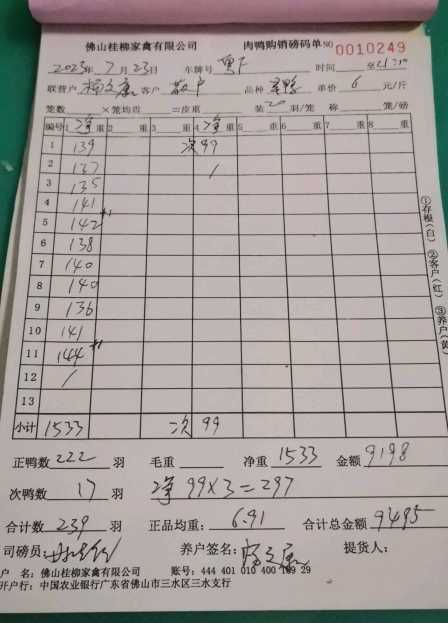 佛山桂柳家禽有限公司 肉鸭购销磅码单 NO 0010249
2023年7月23日 车牌号 时间 至21:20
联营户 客户 散户 品种 单价 6 元/斤
笼数 ×笼均重 =皮重 装20羽/笼 称 笼/磅
编号 1 净 重 2 重 3 重 4 净 重 5 重 6 重 7 重 8 重
1 139 次99
2 137 /
3 135
4 141
5 142
6 138
7 140
8 140
9 136
10 141
11 144
12 /
13
小计 1533 次 99
①存根(白) ②客户(红) ③养户(黄)
正鸭数 222 羽 毛重 净重 1533 金额 9198
次鸭数 17 羽 净 99×3=297
合计数 239 羽 正品均重: 6.91 合计总金额 9495
司磅员: 养户签名: 提货人:
户 名: 佛山桂柳家禽有限公司 账号: 444 401 010 400 29
开户行: 中国农业银行广东省佛山市三水区三水支行